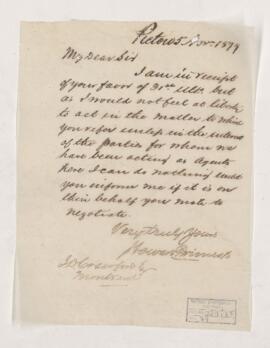 Pictou 5 Nov. 1879
My Dear Sir
I am in receipt
of your favor of 31st Ult. but
as I would not feel at liberty
to act in the matter to which
you refer unless in the interest
of the parties for whom we
have been acting as Agents
here I can do nothing until
you inform me if it is on
their behalf you write to
negotiate.
Very truly Yours
Howard Primrose
J D Crawford Esq
Montreal